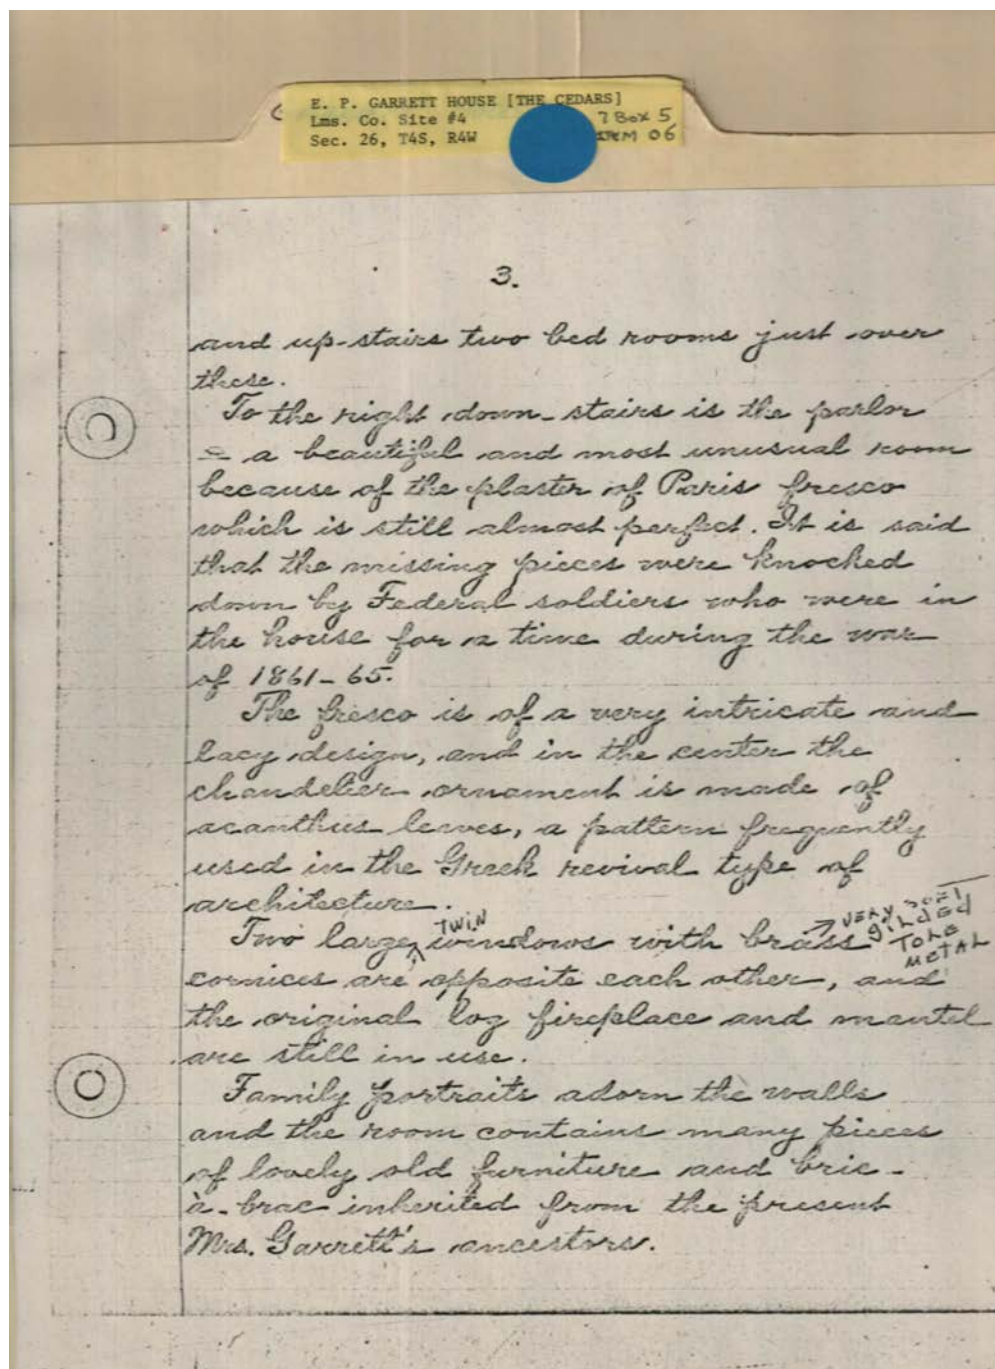 E. P. GARRETT HOUSE [THE CEDARS]
Lms. Co. Site #4
7 Box 5
Sec. 26, T4S, R4W
06
3.
and up-stairs two bed rooms just over
these.
To the right down-stairs is the parlor
- a beautiful and most unusual room
because of the plaster of Paris fresco
which is still almost perfect. It is said
that the missing pieces were knocked
down by Federal soldiers who were in
the house for a time during the war
of 1861-65.
The fresco is of a very intricate and
lacy design, and in the center the
chandelier ornament is made of
acanthus leaves, a pattern frequently
used in the Greek revival type of
architecture.
Two large TWIN windows with brass → VERY SOFT
gilded
TONE
METAL
cornices are opposite each other, and
the original log fireplace and mantel
are still in use.
Family portraits adorn the walls
and the room contains many pieces
of lovely old furniture and bric-
à-brac inherited from the present
Mrs. Garrett's ancestors.